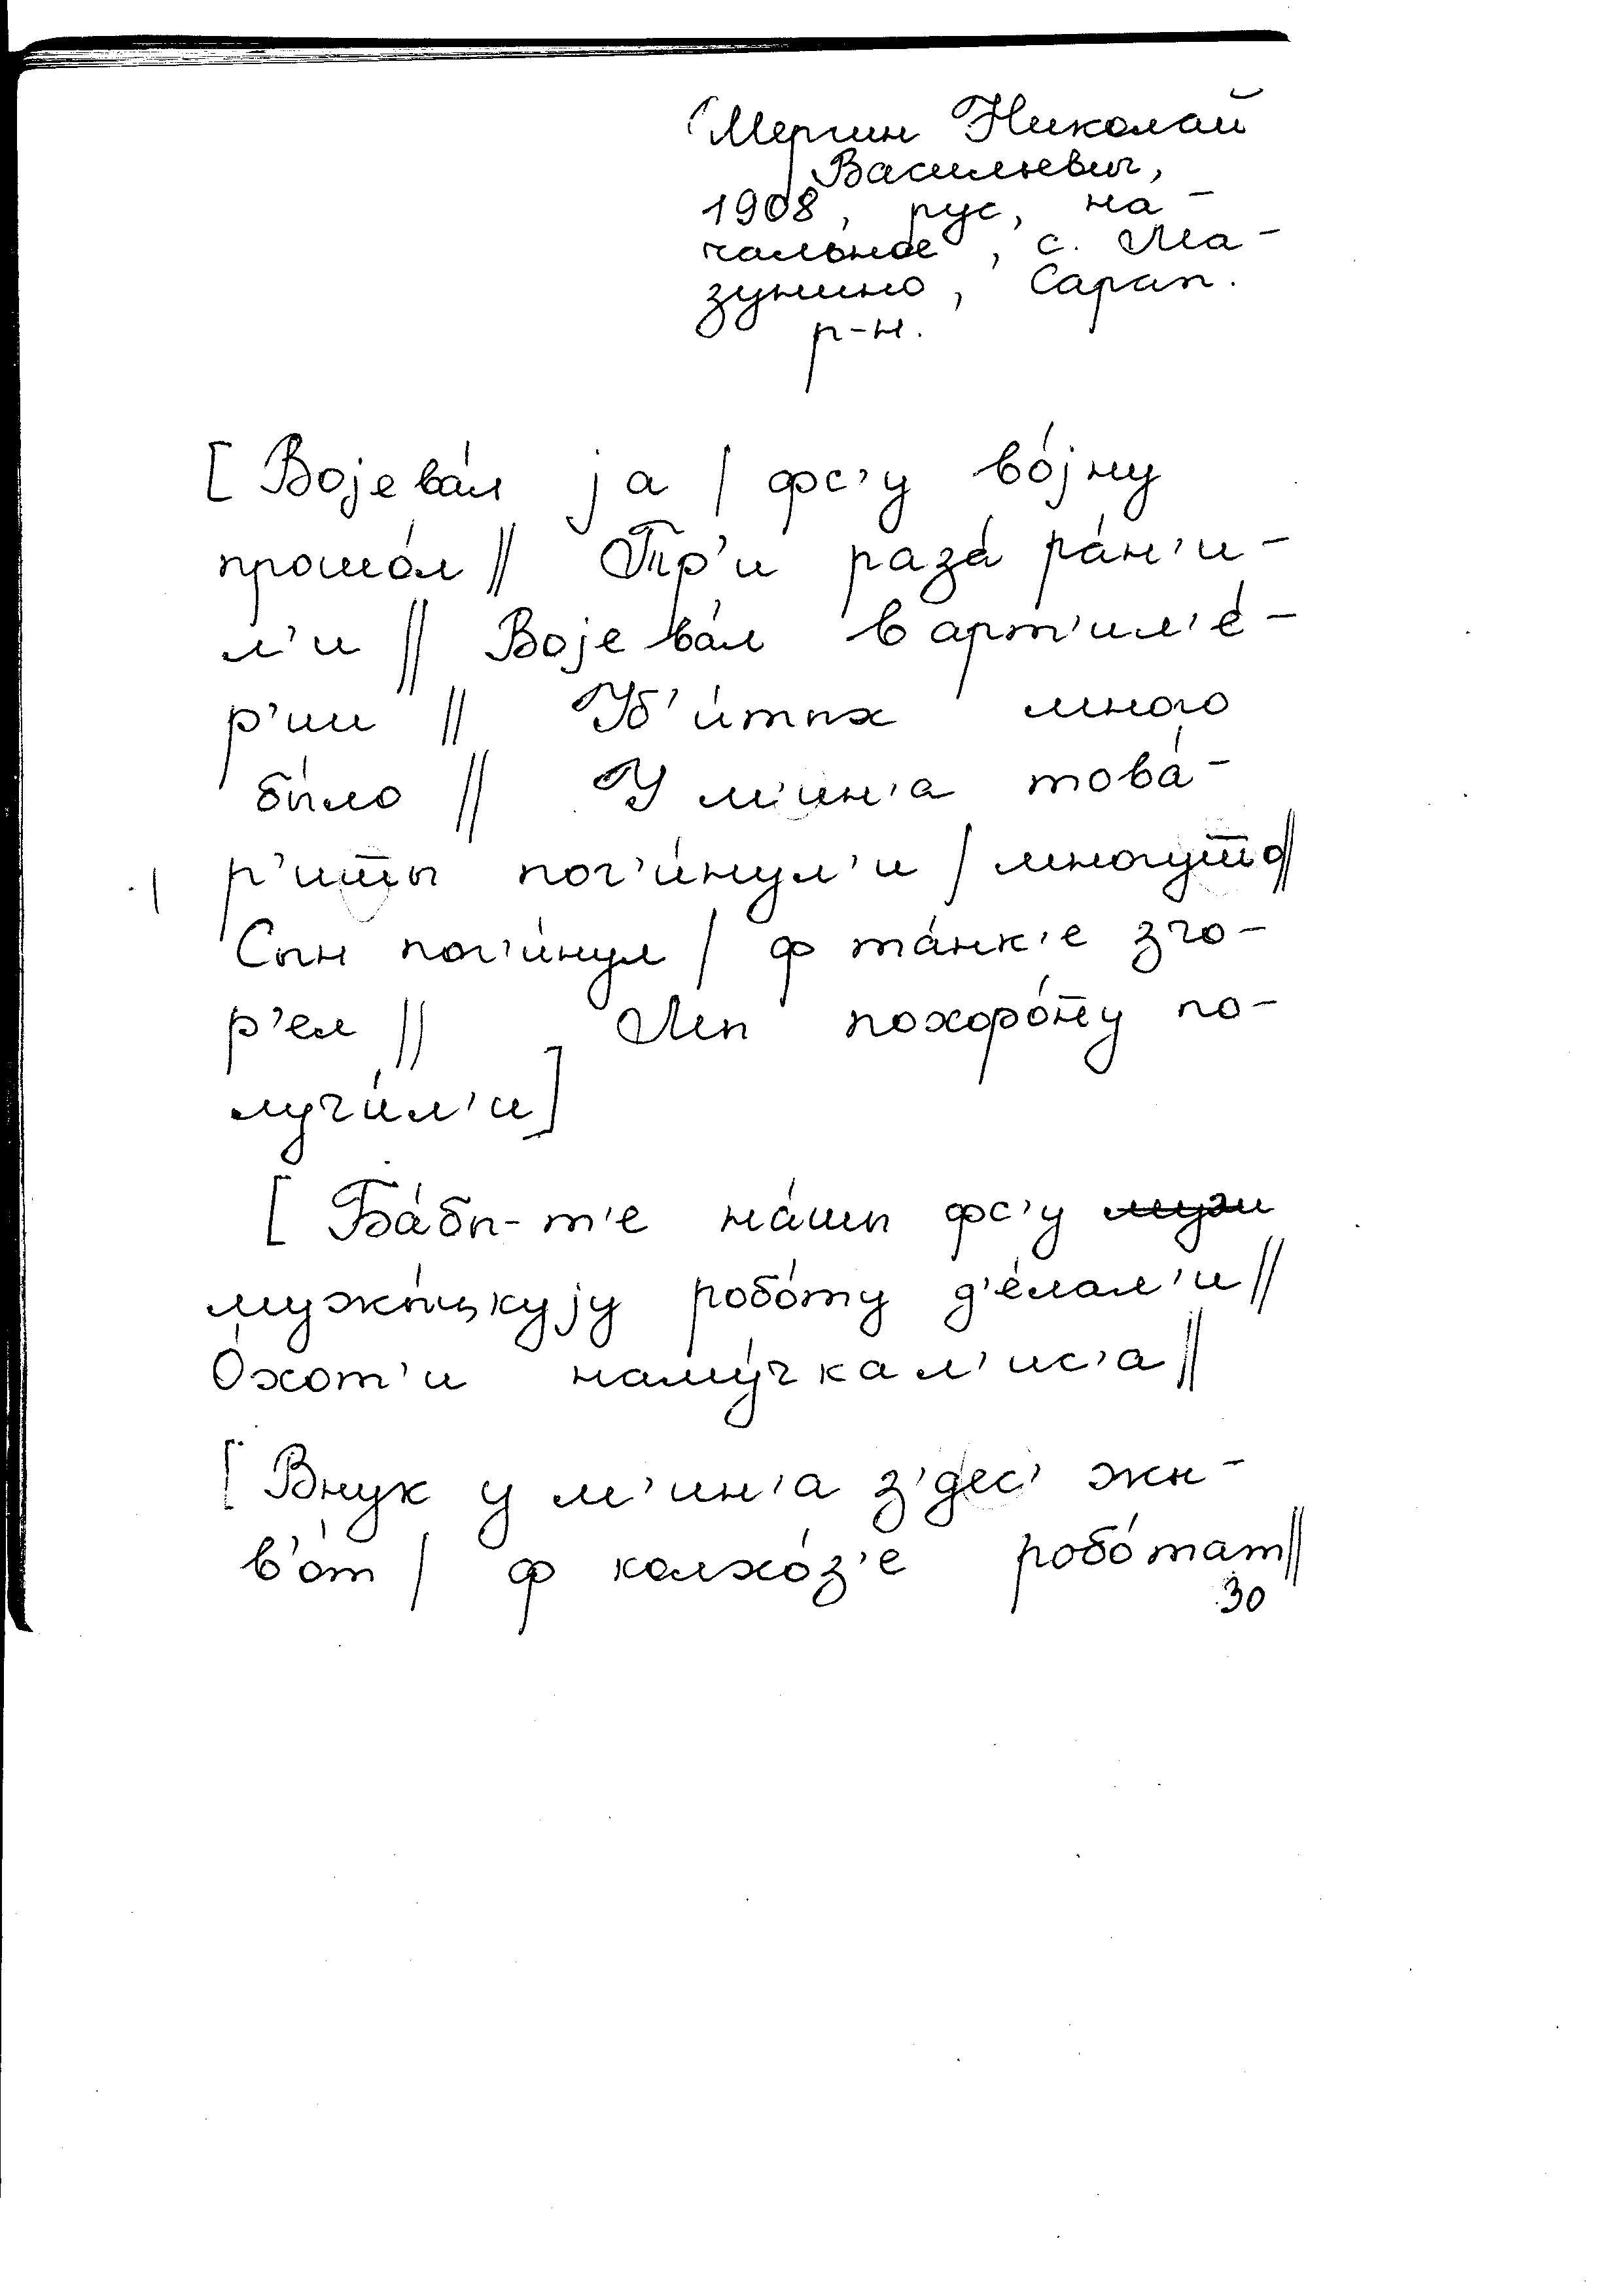 Мергин Николай
Васильевич,
1908, рус, на-
чальное, с. Ма-
зунино, Сарап.
р-н.
[Војева́л ја | фс'у во́јну
прошо́л || Тр'и раза́ ра́н'и-
л'и || Војева́л в арт'ил'е́-
р'ии || Уб'и́тых много
бы́ло || У м'ин'а това́-
р'ишы пог'и́нул'и | |
Сын пог'и́нул | ф та́нк'е зго-
р'ел || Мы похоро́н̄у по-
лучи́л'и]
[Ба́бы-т'е на́шы фс'у
мужы́цкују робо́ту д'е́лал'и ||
О́хот'и наму́чкал'ис'а ||
[Внук у м'ин'а з'дес' жы-
в'о́т | ф колхо́з'е робо́тат ||
30